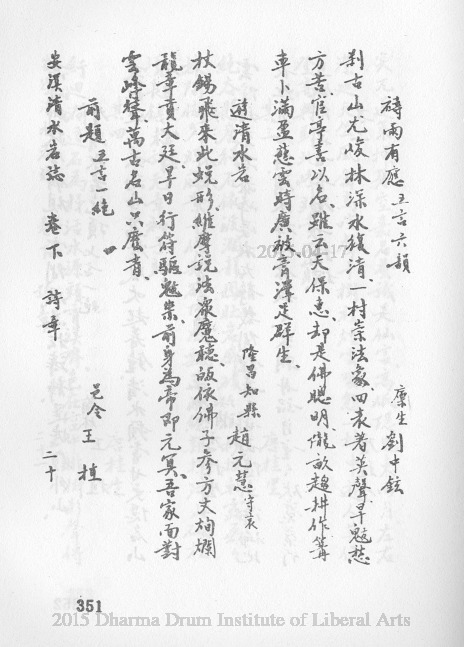 禱雨有應 五言六韻
廩生 劉中鉉
刹古山尤峻林深水復清一村崇法象四表著英聲旱魃愁
方苦官亭喜以名雖云天保惠却是佛聰明隴畝趨耕作篝
車卜滿盈慈雲時廣被膏澤足群生
遊清水岩
隆昌知縣 趙元慧 守哀
杖錫飛來此蛻形維摩說法眾魔聽皈依佛子參方丈絢爛
龍章賁大廷早日行符驅魃祟前身為帝即元冥吾家面對
雲峰聳萬古名山只麼青
前題 五古一絕
邑令 王植
安溪清水岩誌 卷下 詩章 二十
2015-04-17
351
2015 Dharma Drum Institute of Liberal Arts